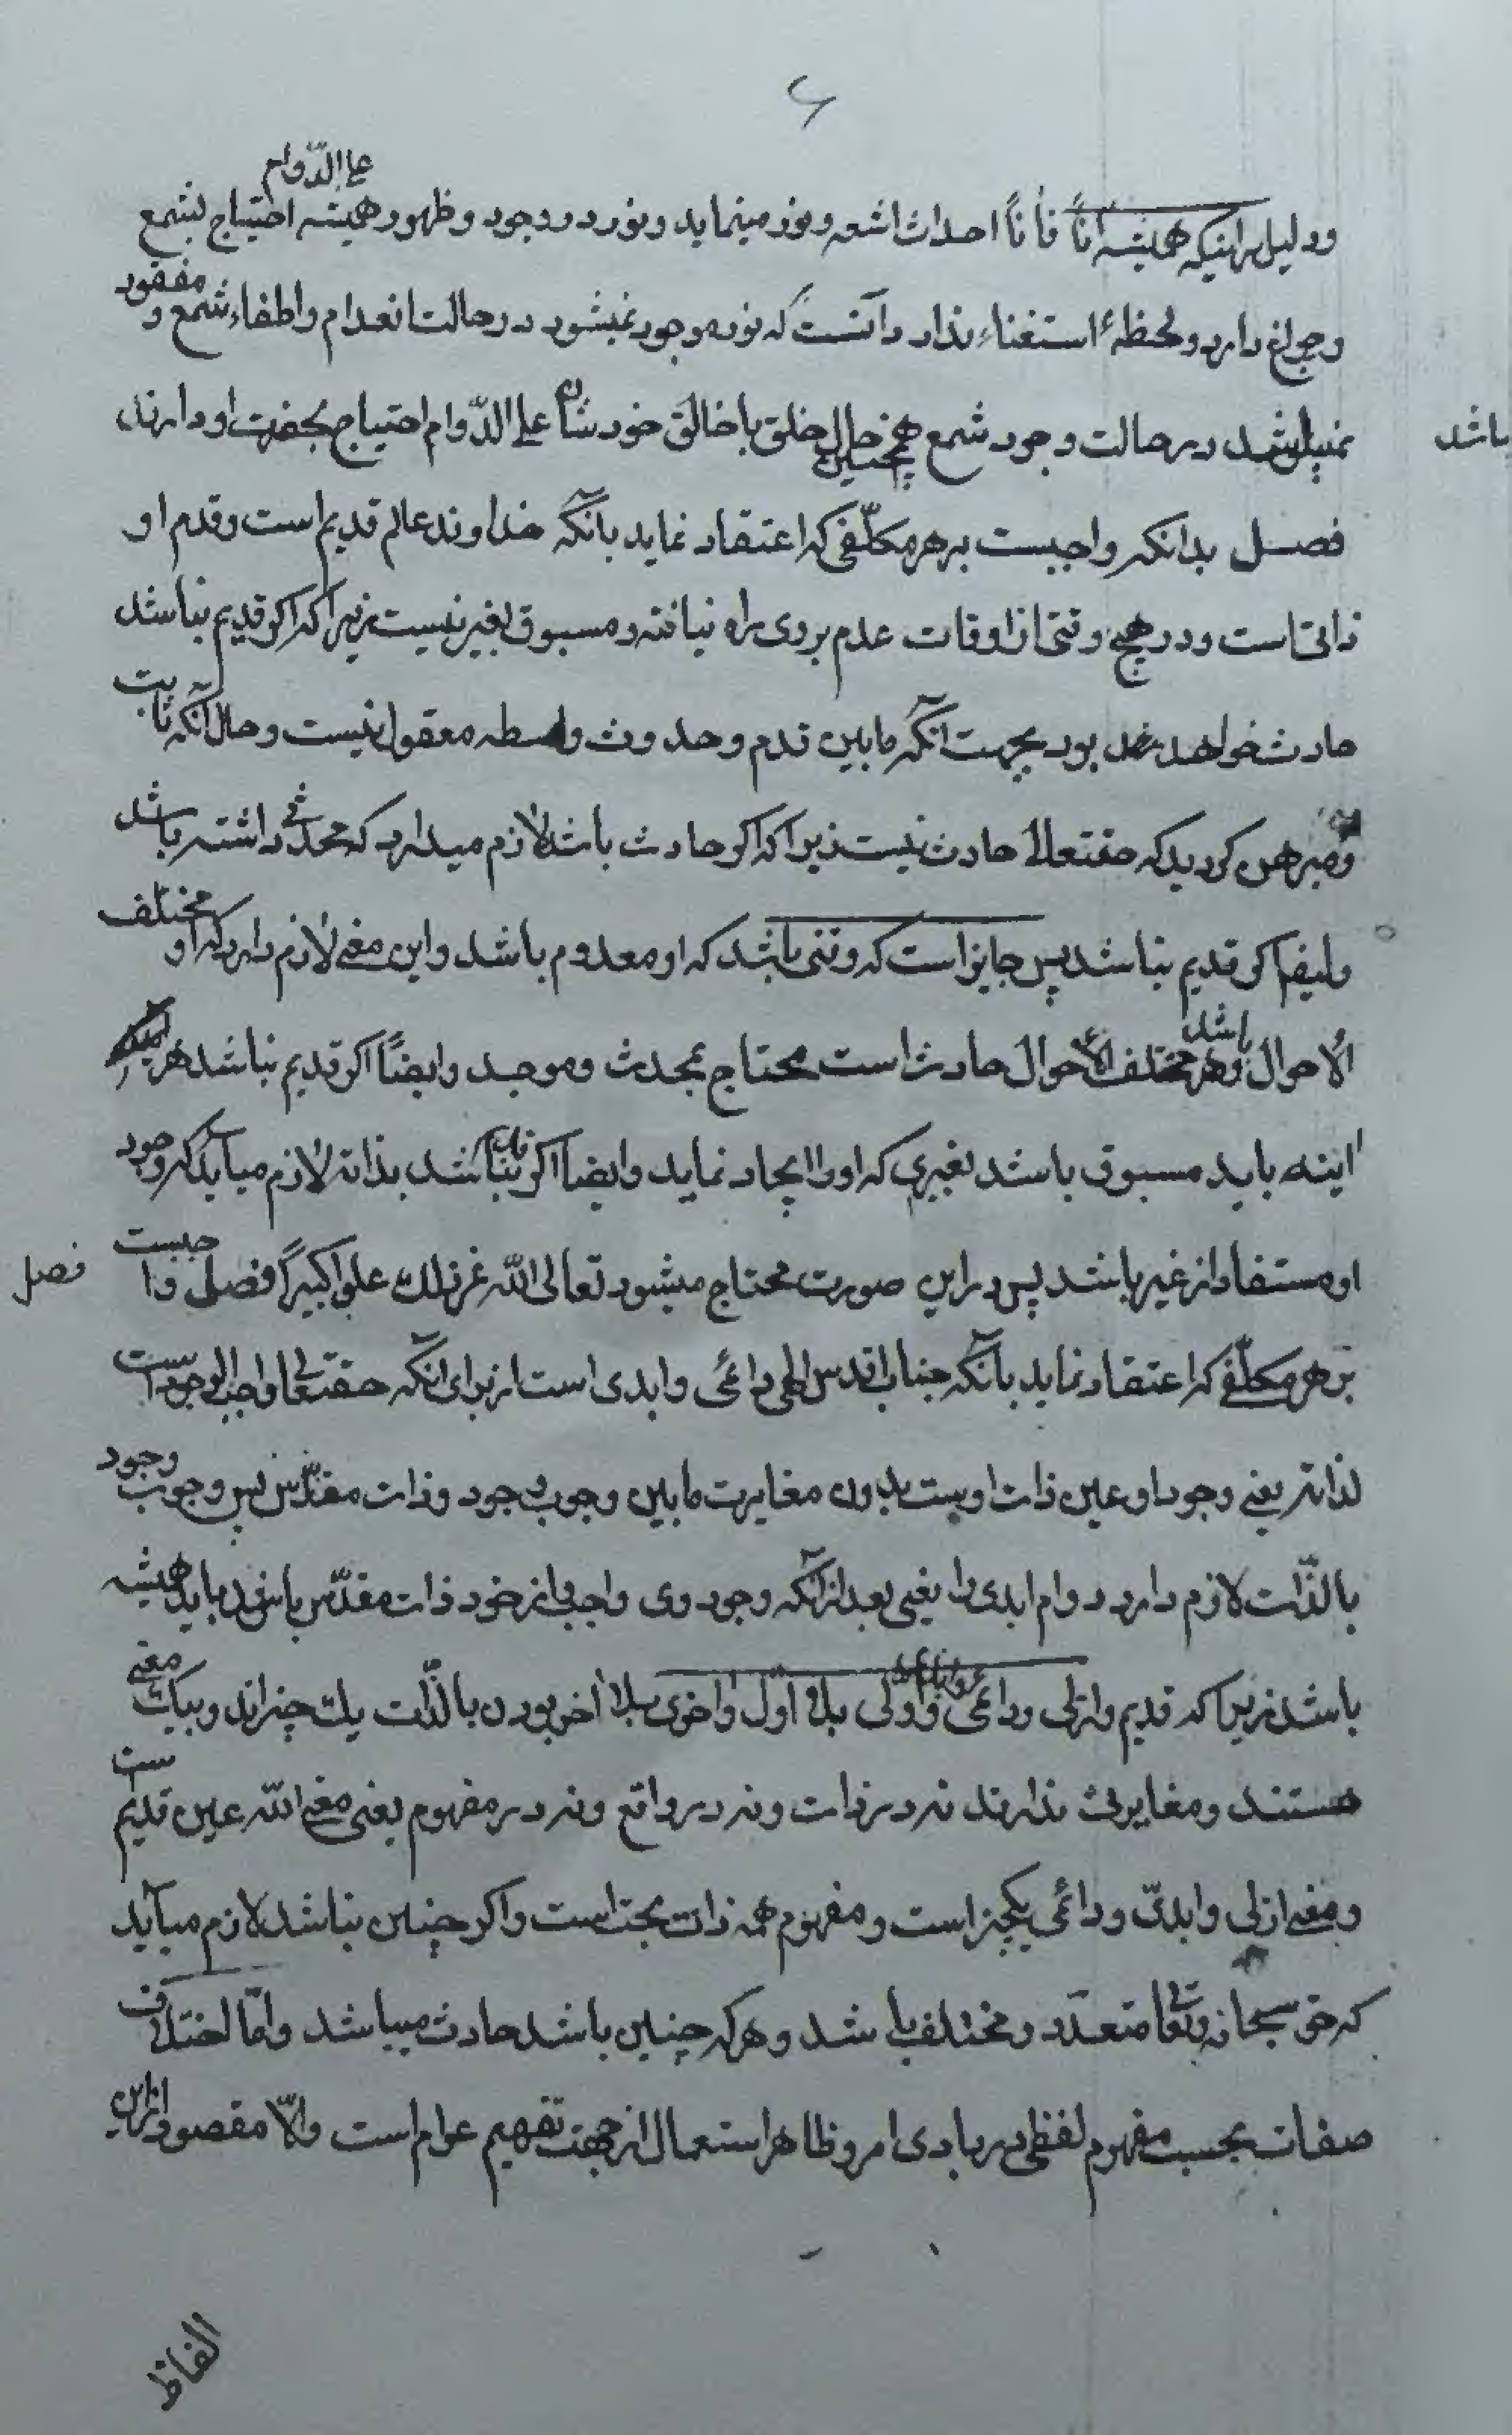 ۶
علی الدّوام
ودلیل براینکه همیشه اناً فاناً احداث اشعه ونور مینماید ونور در وجود وظهور همیشه احتیاج بشمع
وچراغ دارد ولحظهٔ استغناء ندارد آنست که نور موجود نمیشود در حالت انعدام واطفاء شمع و مفقود
نمیباشد در حالت وجود شمع همچنین حال خلق با خالق خودشان علی الدّوام احتیاج بحضرت او دارند
باشد
فصل بدانکه واجبست بر هر مکلّفی که اعتقاد نماید بآنکه خداوند عالم قدیم است وقدم او
ذاتی است ودر هیچ وقتی از اوقات عدم بروی راه نیافته ومسبوق بغیر نیست زیرا که اگر قدیم نباشد
حادث خواهد بود بجهت آنکه مابین قدم وحدوث واسطه معقول نیست وحال آنکه ثابت
ومبرهن گردید که حقتعالی حادث نیست زیرا که اگر حادث باشد لازم میدارد که محدثی داشته باشد
وایضا اگر قدیم نباشد پس جایز است که وقتی باشد که او معدوم باشد واین معنی لازم دارد که او مختلف
الاحوال باشد وهر مختلف الاحوال حادث است محتاج بمحدث وموجد وایضاً اگر قدیم نباشد هر
اینه باید مسبوق باشد بغیری که او را ایجاد نماید وایضا اگر نباشد بذاته لازم میآید که وجود
او مستفاد از غیر باشد پس در این صورت محتاج میشود تعالی الله عن ذلك علواً کبیراً فصل واجبست
فصل
بر هر مکلّفی که اعتقاد نماید بآنکه جناب اقدس الهی دائمی وابدی است از برای آنکه حقتعالی واجب الوجود است
لذاته یعنی وجود او عین ذات اوست بدون مغایرت مابین وجوب وجود وذات مقدّس پس وجوب وجود
بالذّات لازم دارد دوام ابدی را یعنی بعد از آنکه وجود وی واجبی از خود ذات مقدّس باشد باید همیشه
باشد زیرا که قدیم وازلی ودائمی واوّلی بلا اوّل واخری بلا اخر بودن بالذّات یك چیزاند وبیك معنی
هستند ومغایرت ندارند نه در ذات ونه در واقع ونه در مفهوم یعنی معنی الله عین قدیم است
ومعنی ازلی وابدیّ ودائمی یکچیز است ومفهوم همه ذات بحت است واگر چنین نباشد لازم میآید
که حق سبحانه وتعالی متعدّد ومختلف باشد وهر که چنین باشد حادث میباشد وامّا اختلاف
صفات بحسب مفهوم لفظی در بادی امر وظاهر استعمال از جهت تفهیم عوام است والّا مقصود از این
الفاظ